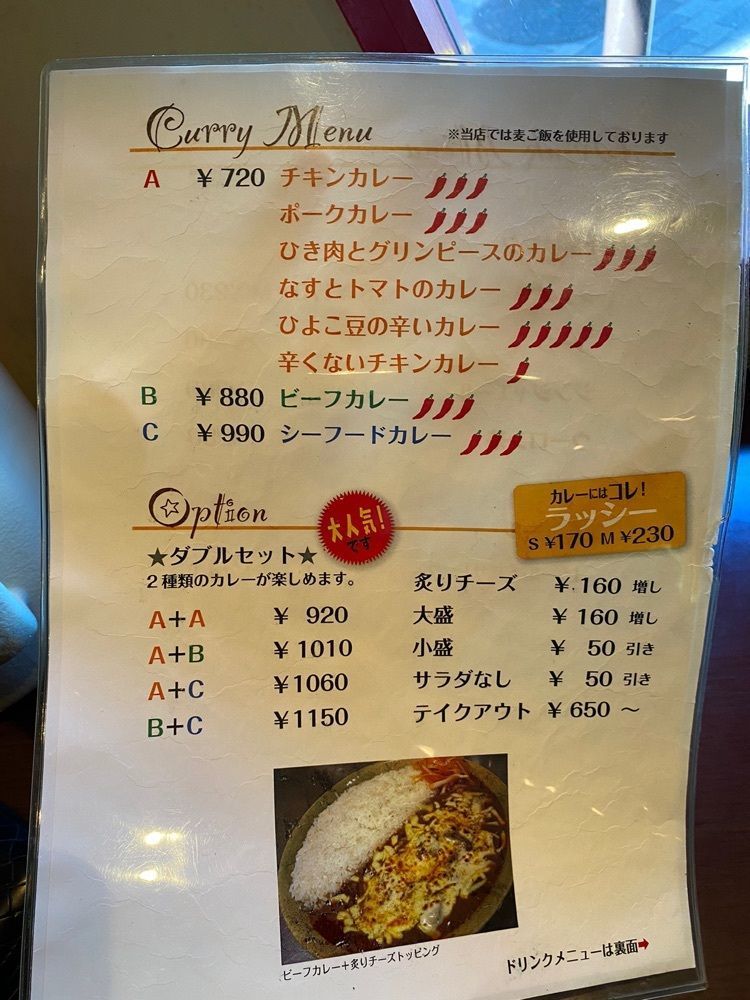 Curry Menu ※当店では麦ご飯を使用しております
A ￥720 チキンカレー
ポークカレー
ひき肉とグリンピースのカレー
なすとトマトのカレー
ひよこ豆の辛いカレー
辛くないチキンカレー
B ￥880 ビーフカレー
C ￥990 シーフードカレー
Option
大人気!
です
カレーにはコレ!
ラッシー
S ¥170 M ¥230
★ダブルセット★
2種類のカレーが楽しめます。
A+A ￥ 920
A+B ￥1010
A+C ￥1060
B+C ￥1150
炙りチーズ ￥160 増し
大盛 ￥160 増し
小盛 ￥ 50 引き
サラダなし ￥ 50 引き
テイクアウト ￥650 ～
ビーフカレー+炙りチーズトッピング
ドリンクメニューは裏面➡